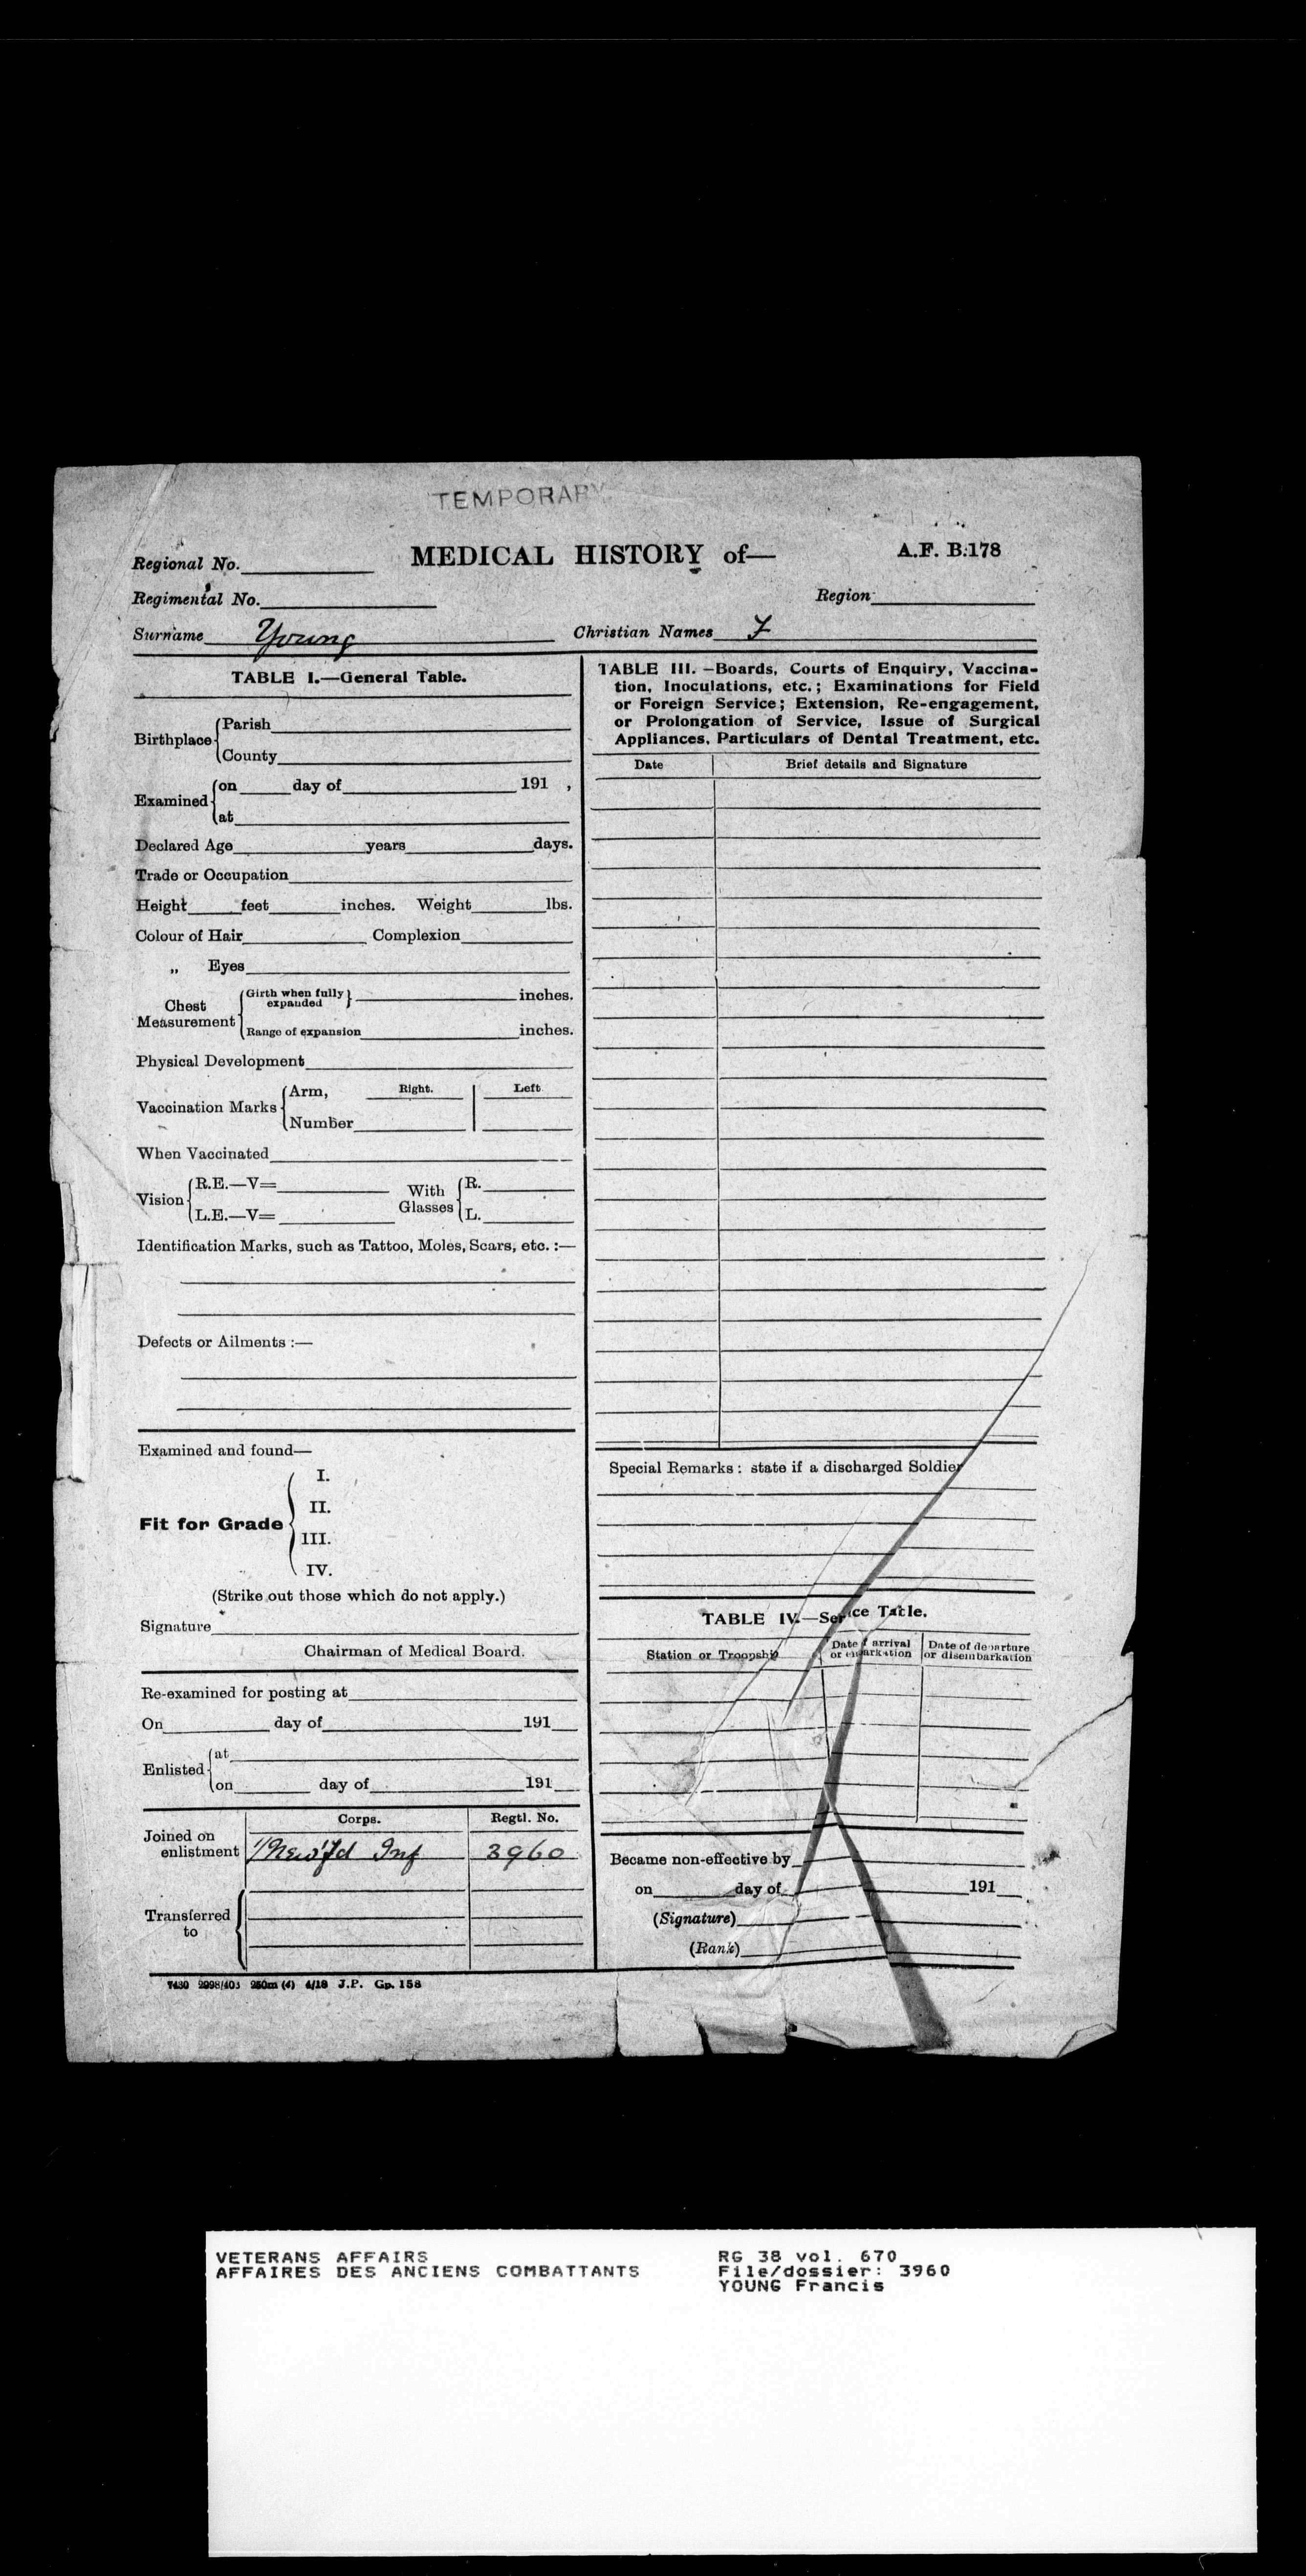 TEMPORARY
Regional No. MEDICAL HISTORY of— A.F. B.178
Regimental No. Region
Surname Young Christian Names F
TABLE I.—General Table.
Birthplace
Parish
County
Examined
on day of 191 ,
at
Declared Age years days.
Trade or Occupation
Height feet inches. Weight lbs.
Colour of Hair Complexion
„ Eyes
Chest Measurement
Girth when fully expanded inches.
Range of expansion inches.
Physical Development
Vaccination Marks
Arm, Right. Left
Number
When Vaccinated
Vision
R.E.—V=
L.E.—V=
With Glasses
R.
L.
Identification Marks, such as Tattoo, Moles, Scars, etc. :—
Defects or Ailments :—
Examined and found—
Fit for Grade
I.
II.
III.
IV.
(Strike out those which do not apply.)
Signature
Chairman of Medical Board.
Re-examined for posting at
On day of 191
Enlisted
at
on day of 191
Corps. Regtl. No.
Joined on enlistment 1/Newf'd Inf 3960
Transferred to
7430 2998/403 250m (4) 4/18 J.P. Gp. 158
TABLE III. —Boards, Courts of Enquiry, Vaccina-
tion, Inoculations, etc.; Examinations for Field
or Foreign Service; Extension, Re-engagement,
or Prolongation of Service, Issue of Surgical
Appliances, Particulars of Dental Treatment, etc.
Date Brief details and Signature
Special Remarks: state if a discharged Soldier
TABLE IV.—Service Table.
Station or Troopship
Date of arrival or embarkation
Date of departure or disembarkation
Became non-effective by
on day of 191
(Signature)
(Rank)
VETERANS AFFAIRS
AFFAIRES DES ANCIENS COMBATTANTS
RG 38 vol. 670
File/dossier: 3960
YOUNG Francis